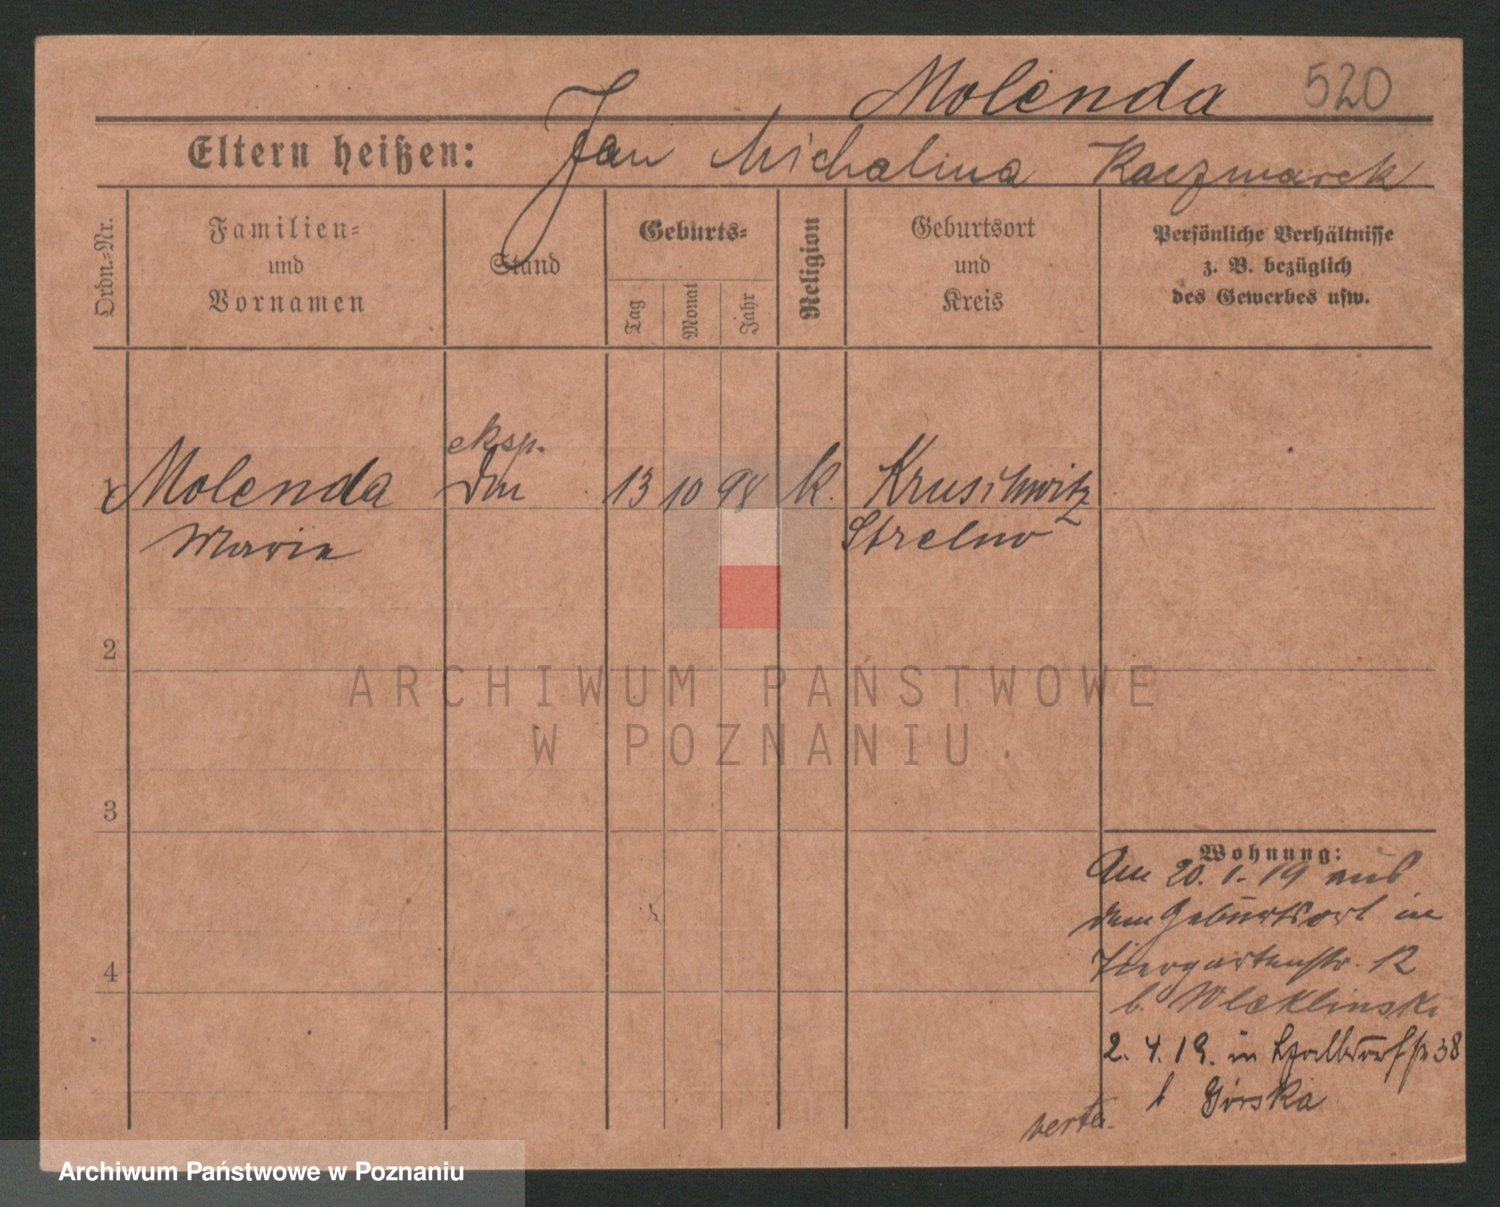 Molenda 520
Eltern heißen: Jan Michalina Kaczmarek
Ordn.-Nr.
Familien-
und
Vornamen
Stand
Geburts-
Tag
Monat
Jahr
Religion
Geburtsort
und
Kreis
Persönliche Verhältnisse
z. B. bezüglich
des Gewerbes usw.
eksp.
1 Molenda 13 10 98 k. Kruschwitz
Marie Strelno
2
3
4
Wohnung:
Am 20.1.19 aus
dem Geburtsort in
Tiergartenstr. 12
b.
2.4.19. in 38
b Górska
verte.
ARCHIWUM PAŃSTWOWE
W POZNANIU
Archiwum Państwowe w Poznaniu